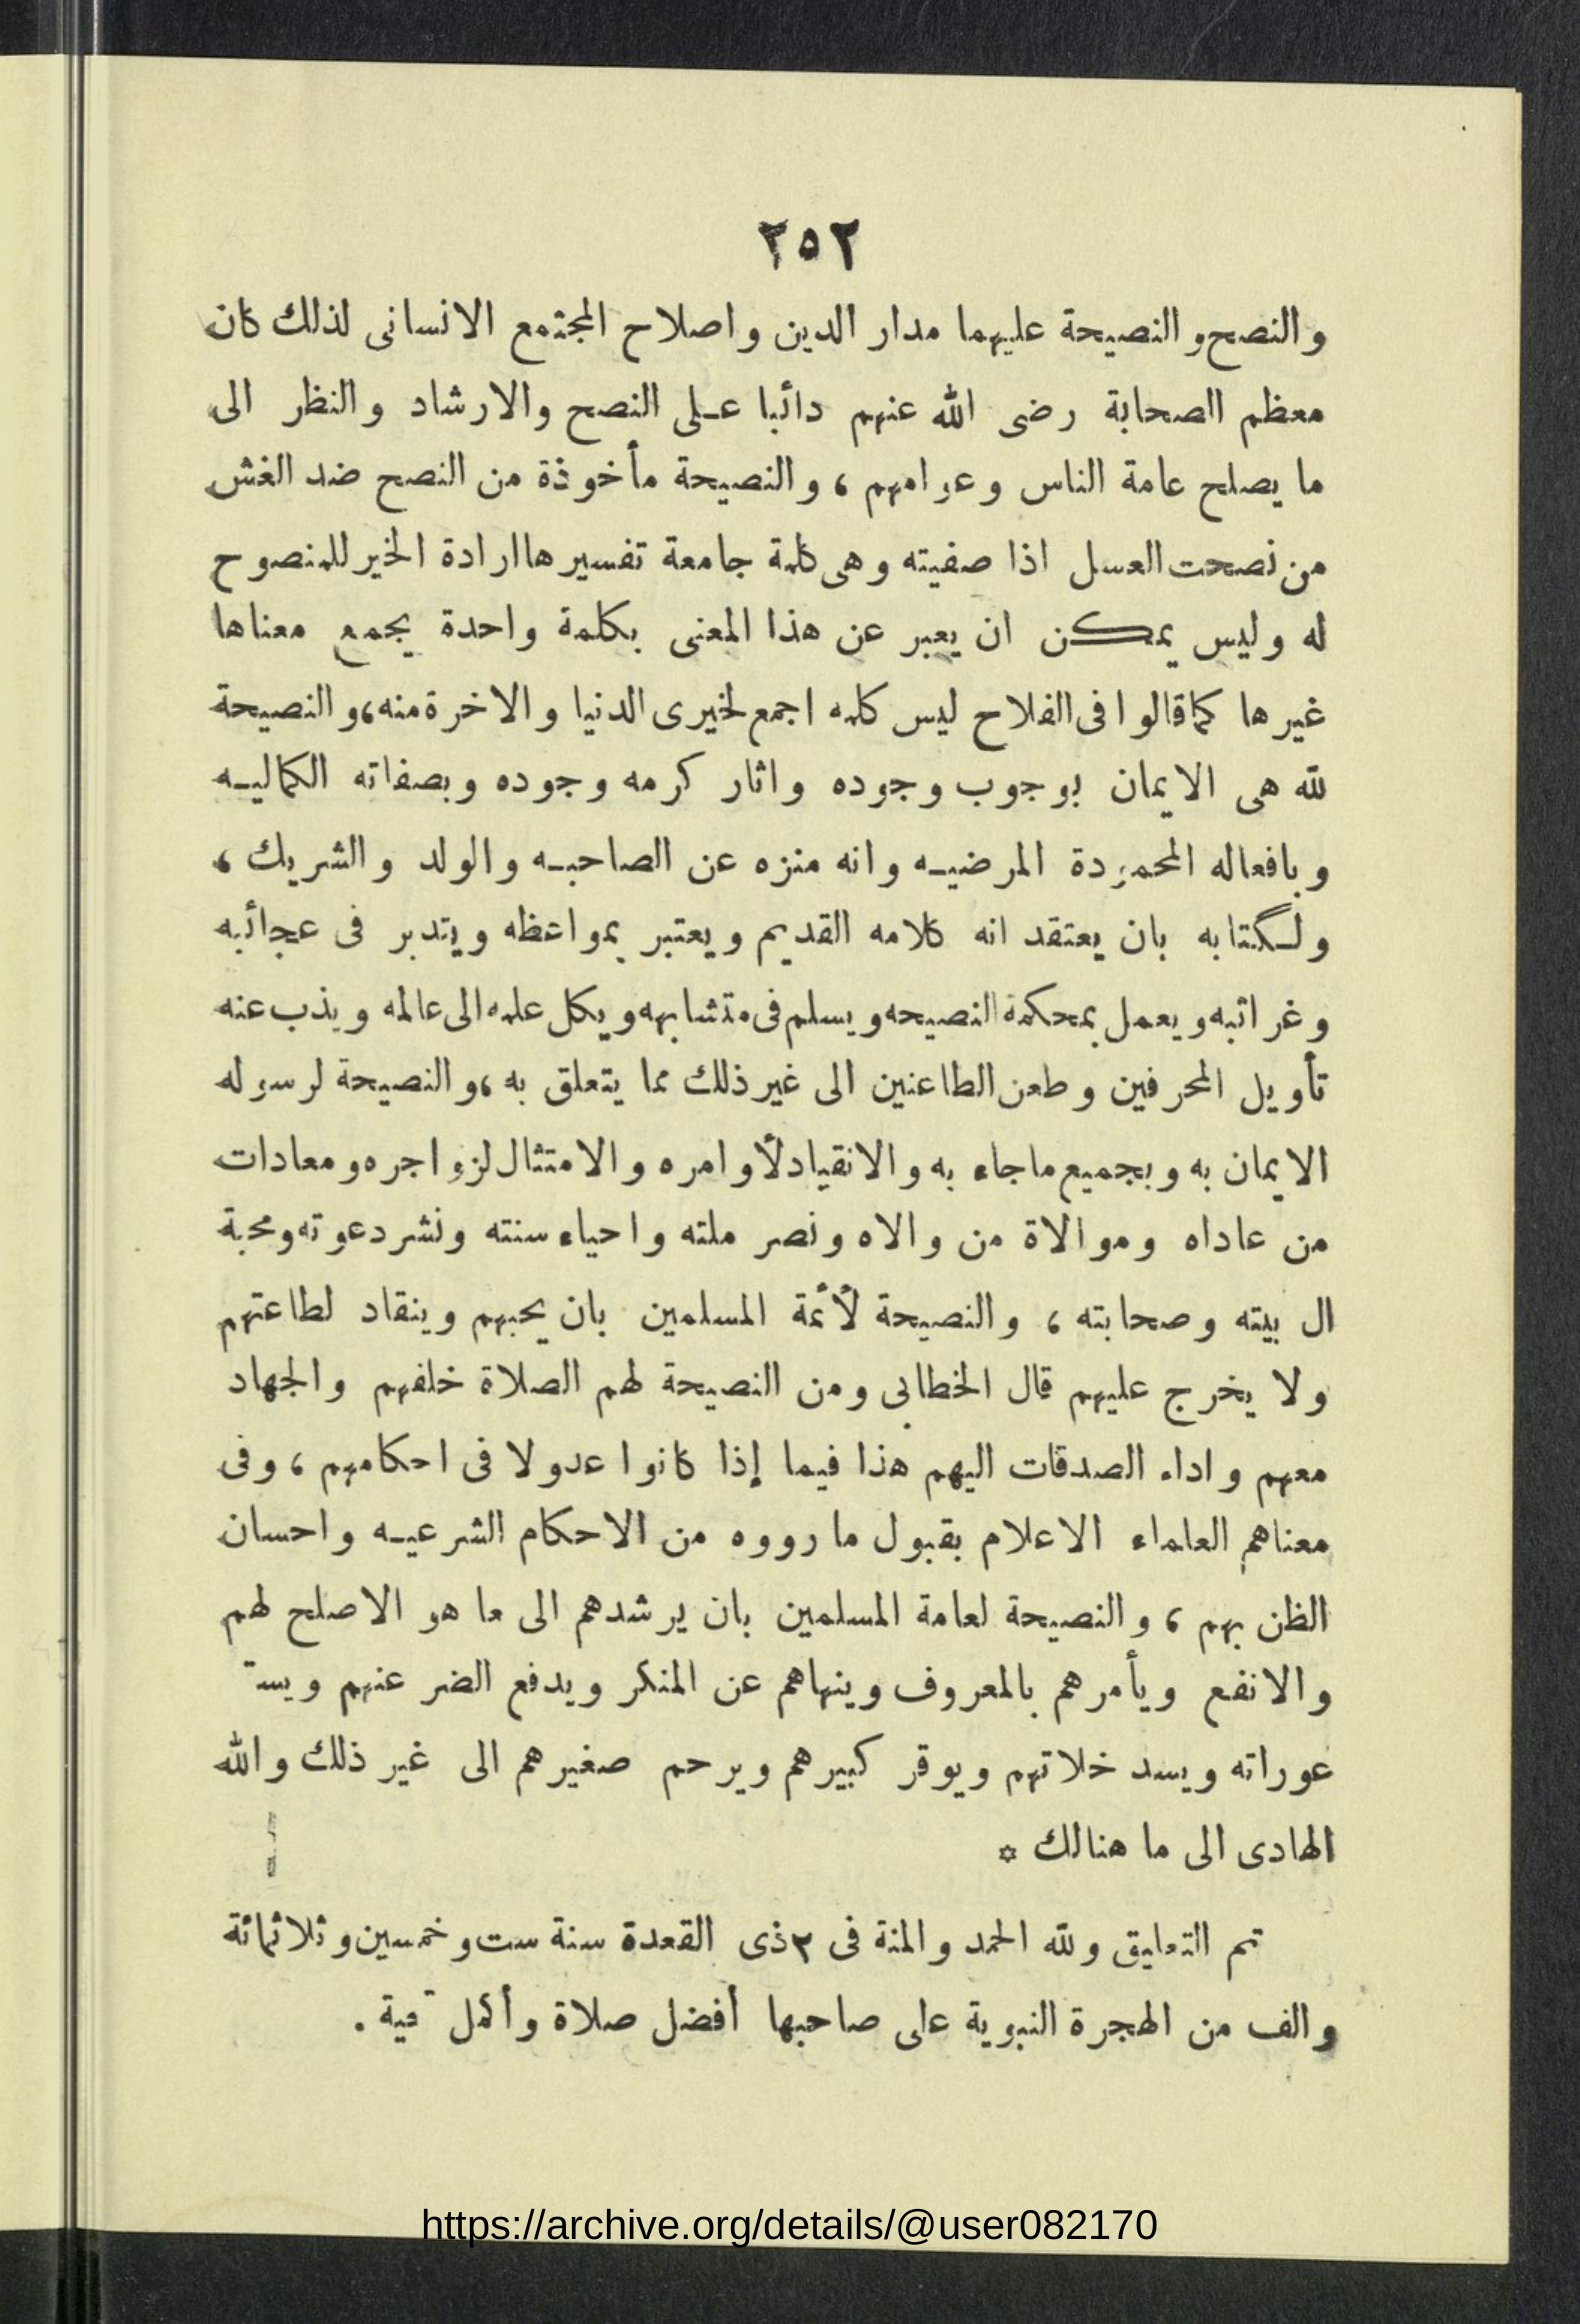 ٢٥٢
والنصح والنصيحة عليهما مدار الدين واصلاح المجتمع الانسانى لذلك كان
معظم الصحابة رضى الله عنهم دائبا على النصح والارشاد والنظر الى
ما يصلح عامة الناس وعوامهم ، والنصيحة مأخوذة من النصح ضد الغش
من نصحت العسل اذا صفيته وهى كلمة جامعة تفسيرها ارادة الخير للمنصوح
له وليس يمكن ان يعبر عن هذا المعنى بكلمة واحدة يجمع معناها
غيرها كما قالوا فى الفلاح ليس كلمه اجمع لخيرى الدنيا والاخرة منه، والنصيحة
لله هى الايمان بوجوب وجوده واثار كرمه وجوده وبصفاته الكماليه
وبافعاله المحمودة المرضيه وانه منزه عن الصاحبه والولد والشريك ،
ولكتابه بان يعتقد انه كلامه القديم ويعتبر بمواعظه ويتدبر فى عجائبه
وغرائبه ويعمل بمحكمة النصيحه ويسلم فى متشابهه ويكل علمه الى عالمه ويذب عنه
تأويل المحرفين وطعن الطاعنين الى غير ذلك مما يتعلق به ، والنصيحة لرسوله
الايمان به وبجميع ماجاء به والانقياد لأوامره والامتثال لزواجره ومعادات
من عاداه وموالاة من والاه ونصر ملته واحياء سنته ونشر دعوته ومحبة
ال بيته وصحابته ، والنصيحة لأئمة المسلمين بان يحبهم وينقاد لطاعتهم
ولا يخرج عليهم قال الخطابى ومن النصيحة لهم الصلاة خلفهم والجهاد
معهم واداء الصدقات اليهم هذا فيما إذا كانوا عدولا فى احكامهم ، وفى
معناهم العلماء الاعلام بقبول ما رووه من الاحكام الشرعيه واحسان
الظن بهم ، والنصيحة لعامة المسلمين بان يرشدهم الى ما هو الاصلح لهم
والانفع ويأمرهم بالمعروف وينهاهم عن المنكر ويدفع الضر عنهم
عوراته ويسد خلاتهم ويوقر كبيرهم ويرحم صغيرهم الى غير ذلك والله
الهادى الى ما هنالك ✡
تم التعليق ولله الحمد والمنة فى ٢ ذى القعدة سنة ست وخمسين وثلاثمائة
والف من الهجرة النبوية على صاحبها أفضل صلاة وأكمل .
https://archive.org/details/@user082170